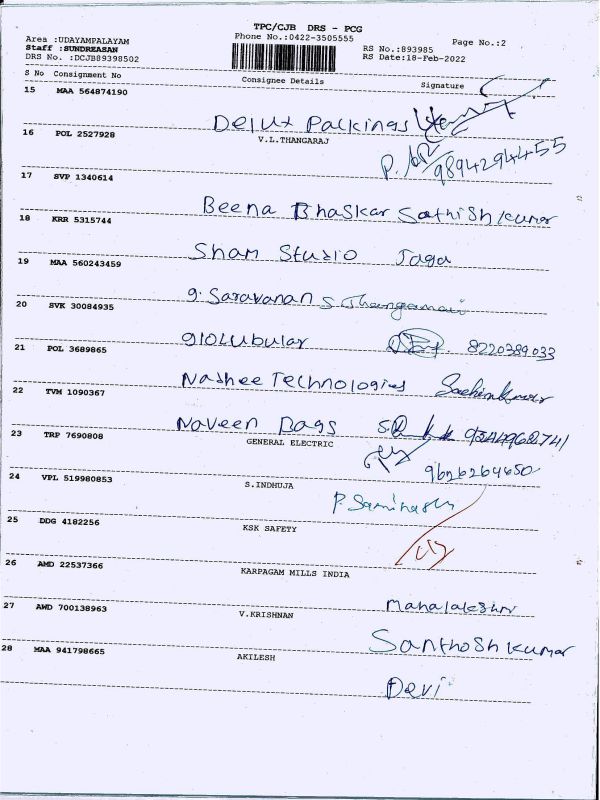 TPC/CJB DRS - PCG
Area :UDAYAMPALAYAM Phone No.:0422-3505555 Page No.:2
Staff :SUNDREASAN RS No.:893985
DRS No. :DCJB89398502 RS Date:18-Feb-2022
S No Consignment No Consignee Details Signature
15 MAA 564874190
Delux Packings
16 POL 2527928 V.L.THANGARAJ
9894294455
17 SVP 1340614
Beena Bhaskar Sathishkumar
18 KRR 5315744
Sham Studio Jaga
19 MAA 560243459
g. Saravanan S. Thangamani
20 SVK 30084935
8220389033
21 POL 3689865
Nashee Technologies Sachinkumar
22 TVM 1090367
Naveen Bags
23 TRP 7690808 GENERAL ELECTRIC
9626264650
24 VPL 519980853 S.INDHUJA
25 DDG 4182256 KSK SAFETY
26 AMD 22537366 KARPAGAM MILLS INDIA
Mahalakshmi
27 AWD 700138963 V.KRISHNAN
Santhosh kumar
28 MAA 941798665 AKILESH
Devi